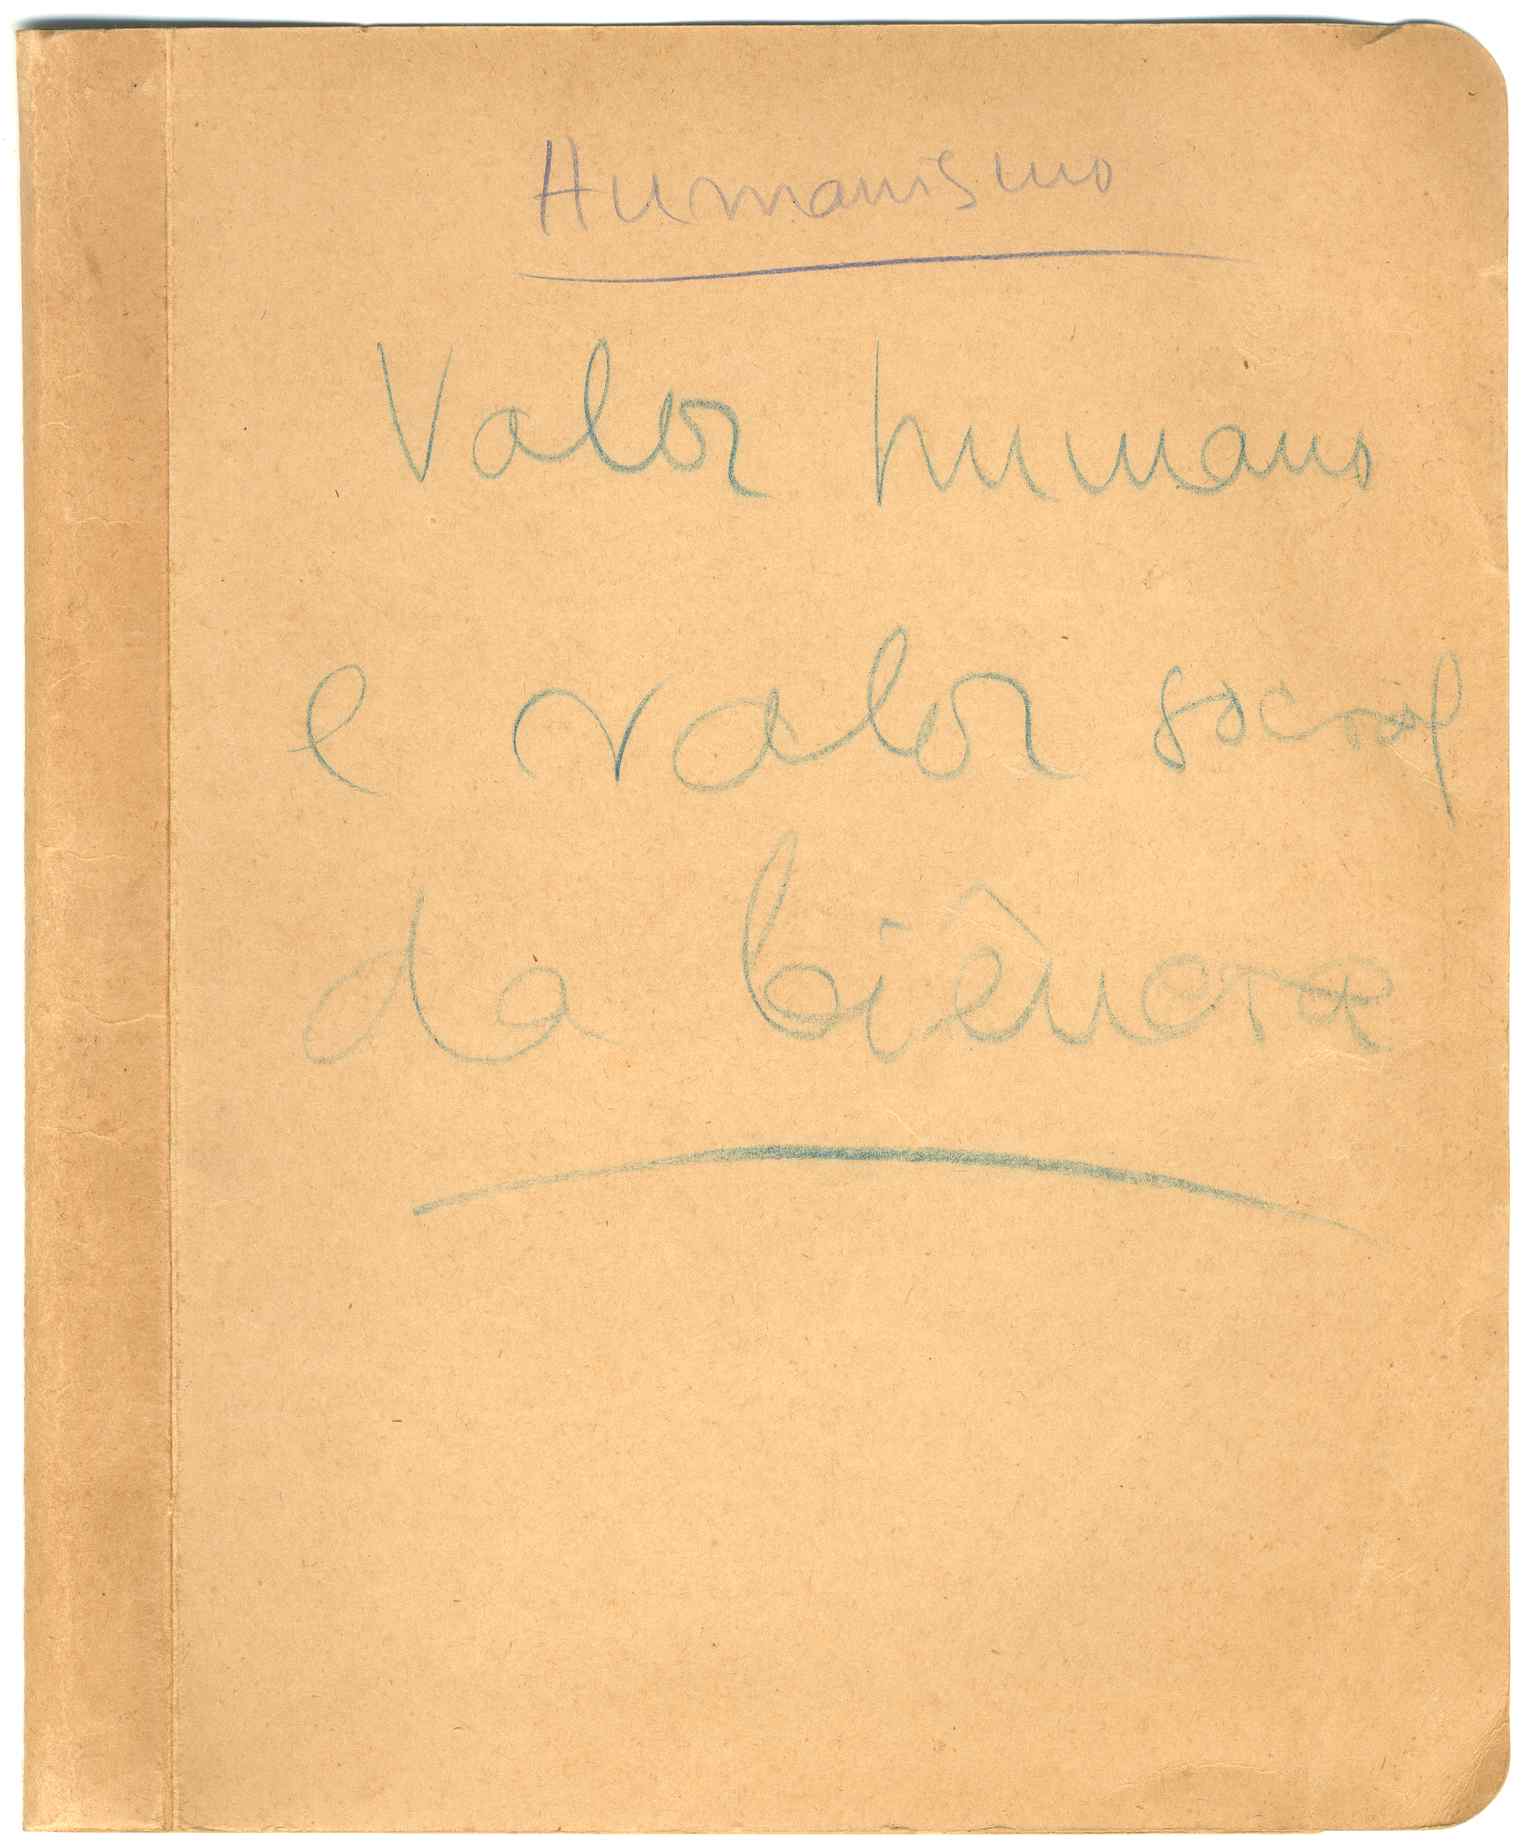 Humanismo
Valor humano
e valor social
da Ciência